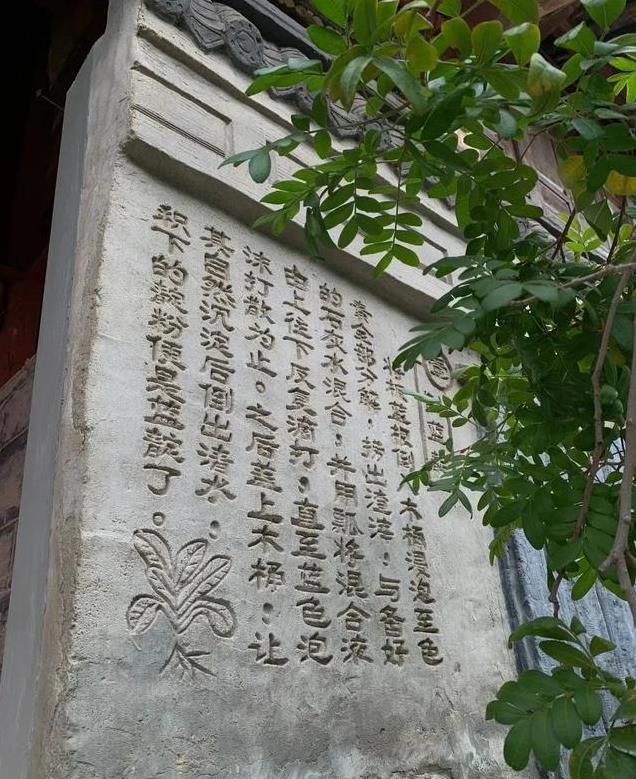 蓝
将板蓝倒木桶浸泡至色
素全部分解；捞出渣；与备好
的石灰水混合；并用瓢将混合液
由上往下反复滴打；直至蓝色泡
沫打散为止。之后盖上木桶；让
其自然沉淀后倒出清水；
积下的靛粉便是蓝靛了。